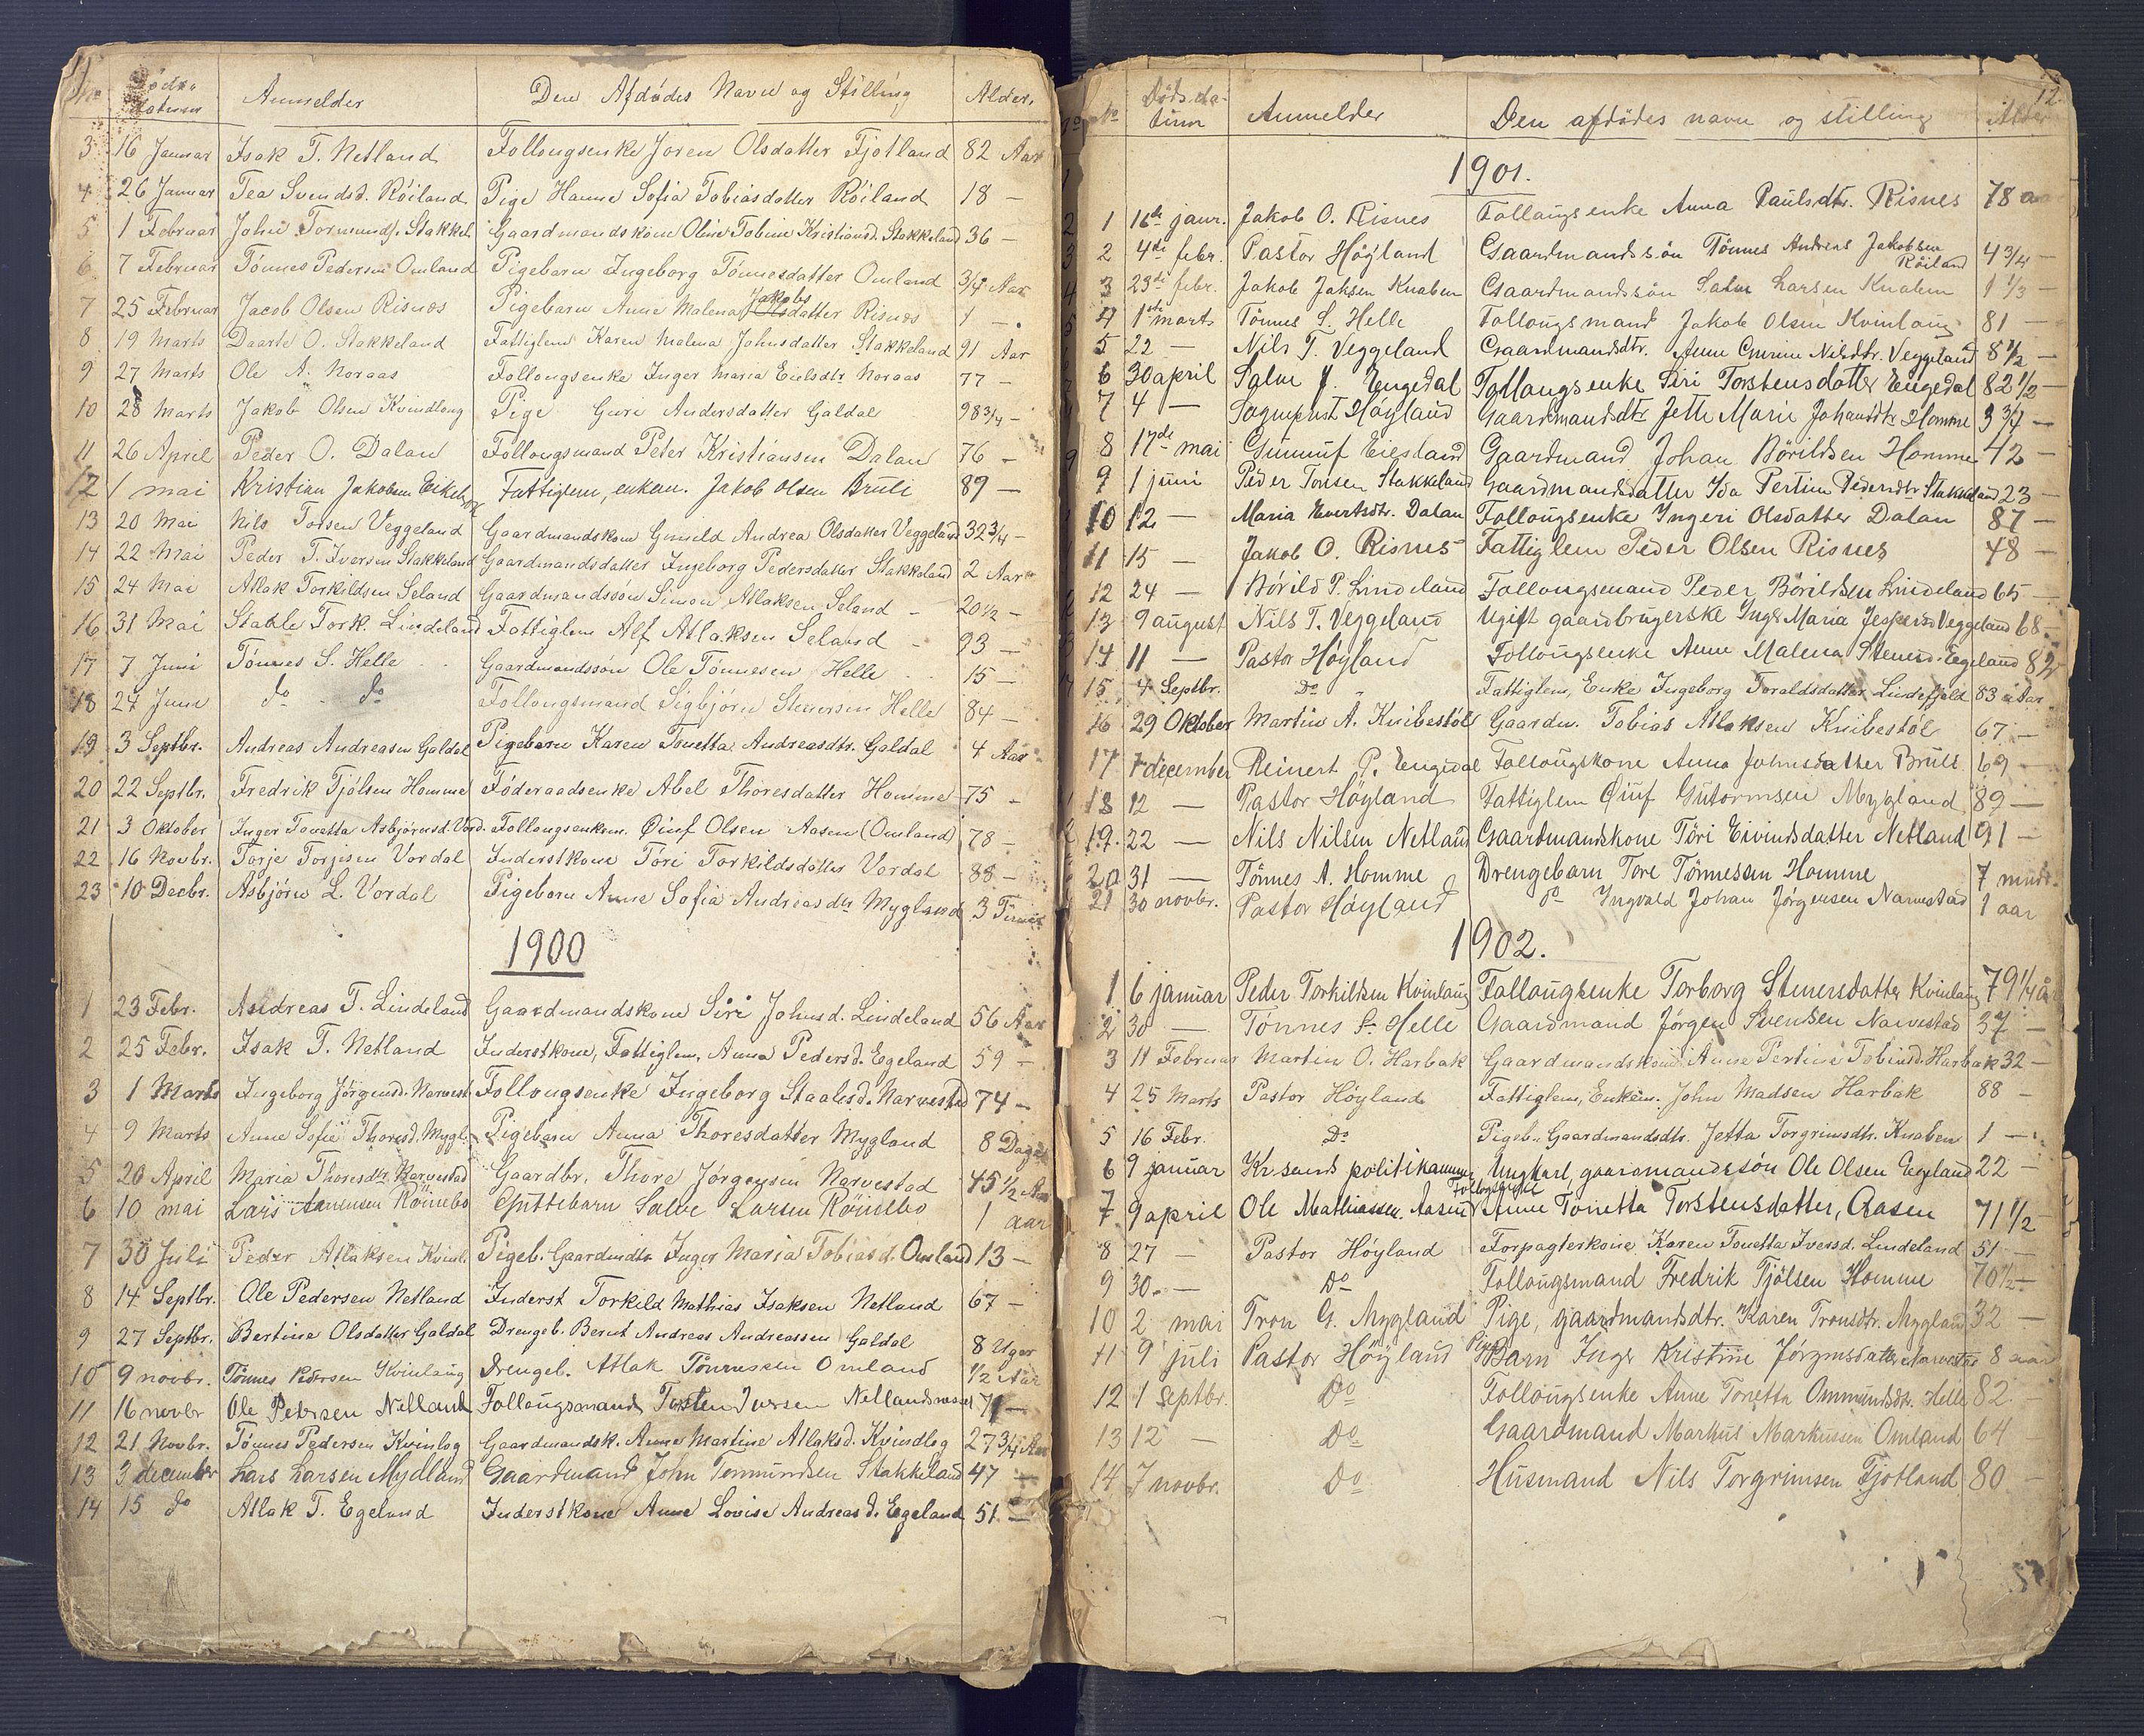 No Döds-datum Anmelder Den Afdödes Navn og Stilling Alder.
3 16 Januar Isak T. Netland Follougsenke Joren Olsdatter Fjotland 82 Aar
4 26 Januar Tea Svendsd. Röiland Pige Hanne Sofia Tobiasdatter Röiland 18 —
5 1 Februar John Tormunds. Stakkel. Gaardmandskone Oline Tobine Kristiansd. Stakkeland 36 —
6 7 Februar Tönnes Pedersen Omland Pigebarn Ingeborg Tönnesdatter Omland 3/4 Aar
7 25 Februar Jacob Olsen Risnes Pigebarn Anne Malena Jakobsdatter Risnes 1 —
8 19 Marts Daarte O. Stakkeland Fattiglem Karen Malena Johnsdatter Stakkeland 91 Aar
9 27 Marts Ole A. Noraas Follougsenke Inger Maria Eielsdtr Noraas 77 —
10 28 Marts Jakob Olsen Kvindlong Pige Guri Andersdatter Galdal 98 3/4 —
11 26 April Peder O. Dalan Follougsmand Peter Kristiansen Dalan 76 —
12 1 mai Kristian Jakobsen Eikeb. Fattiglem, enkem. Jakob Olsen Bruli 89 —
13 20 Mai Nils Torsen Veggeland Gaardmandskone Gunild Andrea Olsdatter Veggeland 32 3/4 —
14 22 Mai Peder T. Iversen Stakkeland Gaardmandsdatter Ingeborg Pedersdatter Stakkeland 2 Aar
15 24 Mai Atlak Torkildsen Seland Gaardmandssön Simon Atlaksen Seland — 20 1/2 —
16 31 Mai Staale Tork. Lindeland Fattiglem Alf Atlaksen Seland — 93 —
17 7 Juni Tönnes S. Helle Gaardmandssön Ole Tönnesen Helle 15 —
18 24 June do do Follougsmand Sigbjörn Stenersen Helle 84 —
19 3 Septbr. Andreas Andreasen Galdal Pigebarn Karen Tonetta Andreasdtr. Galdal 4 Aar
20 22 Septbr. Fredrik Tjölsen Homme Föderaadsenke Abel Thoresdatter Homme 75 —
21 3 Oktober Inger Tonetta Asbjörnsd. Vord. Follougsenkem. Öiuf Olsen Aasen (Omland) 78 —
22 16 Novbr. Torje Torjesen Vordal Inderstkone Töri Torkildsdatter Vordal 88 —
23 10 Decbr. Asbjörn L. Vordal Pigebarn Anne Sofia Andreasdtr Mygland 3 Timer
1900
1 23 Febr. Andreas T. Lindeland Gaardmandskone Siri Johnsd. Lindeland 56 Aar
2 25 Febr. Isak T. Netland Inderstkone, Fattiglem, Anna Pedersd. Egeland 59 —
3 1 Marts Ingeborg Jörgensd. Narvest. Follougsenke Ingeborg Staalesd. Narvestad 74 —
4 9 Marts Anne Sofie Thoresd. Mygl. Pigebarn Anna Thoresdatter Mygland 8 Dage
5 20 April Maria Thoresdtr Narvestad Gaardbr. Thore Jörgensen Narvestad 45 1/2 Aar
6 10 mai Lars Aanensen Röinebö Guttebarn Salve Larsen Röinebö 1 aar
7 30 Juli Peder Atlaksen Kvinl. Pigeb. Gaardmdtr Inger Maria Tobiasd. Omland 13 —
8 14 Septbr. Ole Pedersen Netland Inderst Torkild Mathias Isaksen Netland 67 —
9 27 Septbr. Bertine Olsdatter Galdal Drengeb. Bernt Andreas Andreassen Galdal 8 Uger
10 9 novbr. Tönnes Pedersen Kvinlaug Drengeb. Atlak Tönnessen Omland 1/2 Aar
11 16 novbr Ole Petersen Netland Follougsmand Torsten Iversen Netlandsneset 71 —
12 21 Novbr. Tönnes Pedersen Kvinlog Gaardmandsk. Anne Martine Atlaksd. Kvindlog 27 3/4 Aar
13 3 december Lars Larsen Mydland Gaardmand John Tormundsen Stakkeland 47 —
14 15 do Atlak T. Egeland Inderstkone Anne Lovise Andreasd. Egeland 51 —
12
No Döds-datum Anmelder Den afdödes navn og stilling Alder
1901.
1 16de janr. Jakob O. Risnes Follougsenke Anna Paulsdtr. Risnes 78 aar
2 4de febr. Pastor Höyland Gaardmandssön Tönnes Andreas Jakobsen Röiland 4 3/4 —
3 23de febr. Jakob Jaksen Knaben Gaardmandssön Salve Larsen Knaben 1 1/3 —
4 1ste marts Tönnes S. Helle Follougsmand Jakob Olsen Kvinlaug 81 —
5 22 — Nils T. Veggeland Gaardmandsdtr. Anne Gurine Nilsdtr. Veggeland 8 1/2 —
6 30 april Salve J. Engedal Follougsenke Siri Torstensdatter Engedal 82 1/2 —
7 4 — Sogneprest Höyland Gaardmandsdtr Jette Marie Johansdtr Homme 3 3/4 —
8 17de mai Gunnuf Eiesland Gaardmand Johan Börildsen Homme 42 —
9 1 juni Peder Tonsen Stakkeland Gaardmandsdatter Ida Pertine Pedersdtr Stakkeland 23 —
10 12 — Maria Evertsdtr. Dalan Follougsenke Ingeri Olsdatter Dalan 87 —
11 15 — Jakob O. Risnes Fattiglem Peder Olsen Risnes 48 —
12 24 — Börild P. Lindeland Follougsmand Peder Börildsen Lindeland 65 —
13 9 august Nils T. Veggeland Ugift gaardbrugerske Inger Maria Jespersd Veggeland 68 —
14 11 — Pastor Höyland Follougsenke Anne Malena Stenersd. Egeland 82
15 4 Septbr. Do " Fattiglem, Enke Ingeborg Toraldsdatter Lindefjeld 83 Aar
16 29 Oktober Martin A. Knibestöl Gaardm. Tobias Atlaksen Knibestöl 67 —
17 7 december Reinert P. Engedal Follougskone Anna Johnsdatter Bruli 69 —
18 12 — Pastor Höyland Fattiglem Öiuf Gutormsen Mygland 89 —
19. 22 — Nils Nilsen Netland Gaardmandskone Töri Eivindsdatter Netland 91 —
20 31 — Tönnes A. Homme Drengebarn Tore Tönnesen Homme 7 mndr.
21 30 novbr. Pastor Höyland do Ingvald Johan Jörgensen Narvestad 1 aar
1902.
1 6 januar Peder Torkildsen Kvinlaug Follougsenke Torborg Stenersdatter Kvinlaug 79 1/4 år
2 30 — Tönnes S. Helle Gaardmand Jörgen Svendsen Narvestad 37 —
3 11 Februar Martin O. Harbak Gaardmandskone Anne Pertine Tobiasd. Harbak 32 —
4 25 Marts Pastor Höyland Fattiglem, Enkem. John Madsen Harbak 88 —
5 16 Febr. Do Pigeb. Gaardmandsdtr. Jetta Torgrimsdtr. Knaben 1 —
6 9 januar Kr.sands politikammer Ungkarl, gaardmandssön Ole Olsen Egeland 22 —
7 9 april Ole Mathiassen Aasen Follougsenke Anne Tonetta Torstensdatter, Aasen 71 1/2
8 27 — Pastor Höyland Forpagterkone Karen Tonetta Iversd. Lindeland 51 —
9 30. — Do Follougsmand Fredrik Tjölsen Homme 70 1/2 —
10 2 mai Tron G. Mygland Pige, gaardmandsdtr. Karen Tronsdtr. Mygland 32 —
11 9 juli Pastor Höyland Pigebarn Inger Kristine Jörgensdatter Narvestad 8 aar
12 1 Septbr. Do Follougsenke Anne Tonetta Ommundsdtr. Helle 82
13 12 — Do Gaardmand Markus Markussen Omland 64 —
14 7 novbr. Do Husmand Nils Torgrimsen Fjotland 80 —